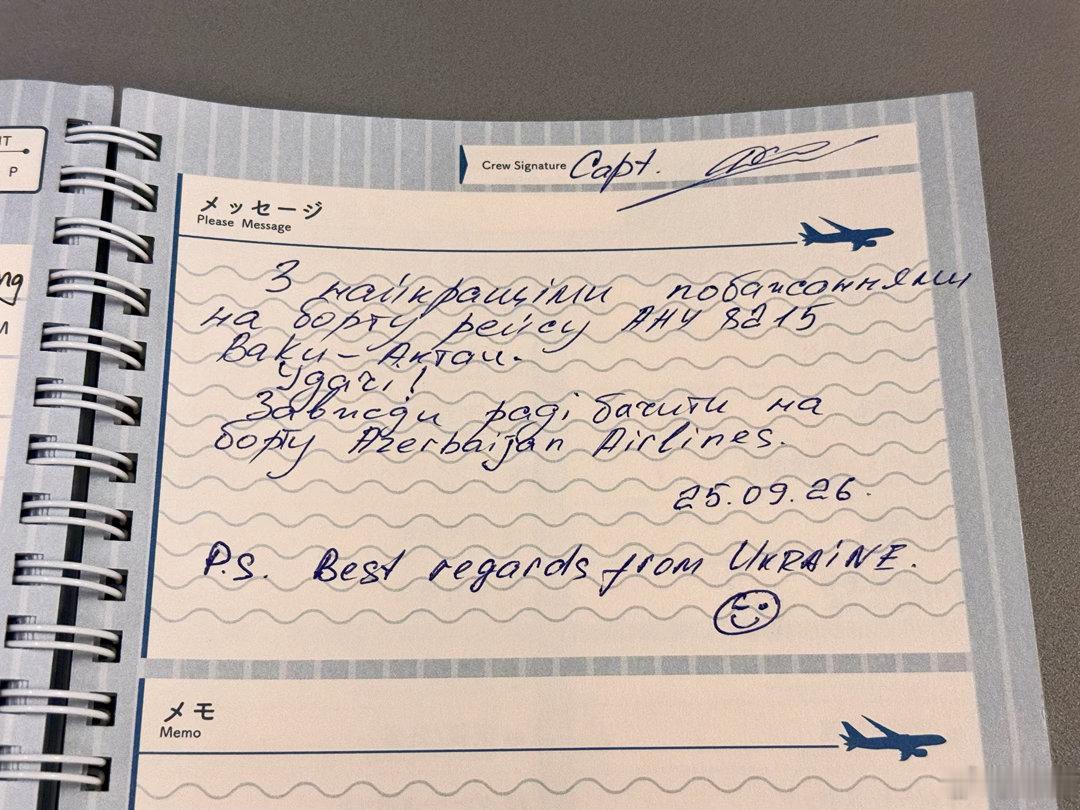 IT
P
ng
M
Crew Signature Capt.
メッセージ
Please Message
З найкращіми побажаннями
на борту рейсу AHY 8215
Baku - Актау.
Удачі!
Завжди раді бачити на
борту Azerbaijan Airlines.
25.09.26.
P.S. Best regards from UKRAiNE.
メモ
Memo